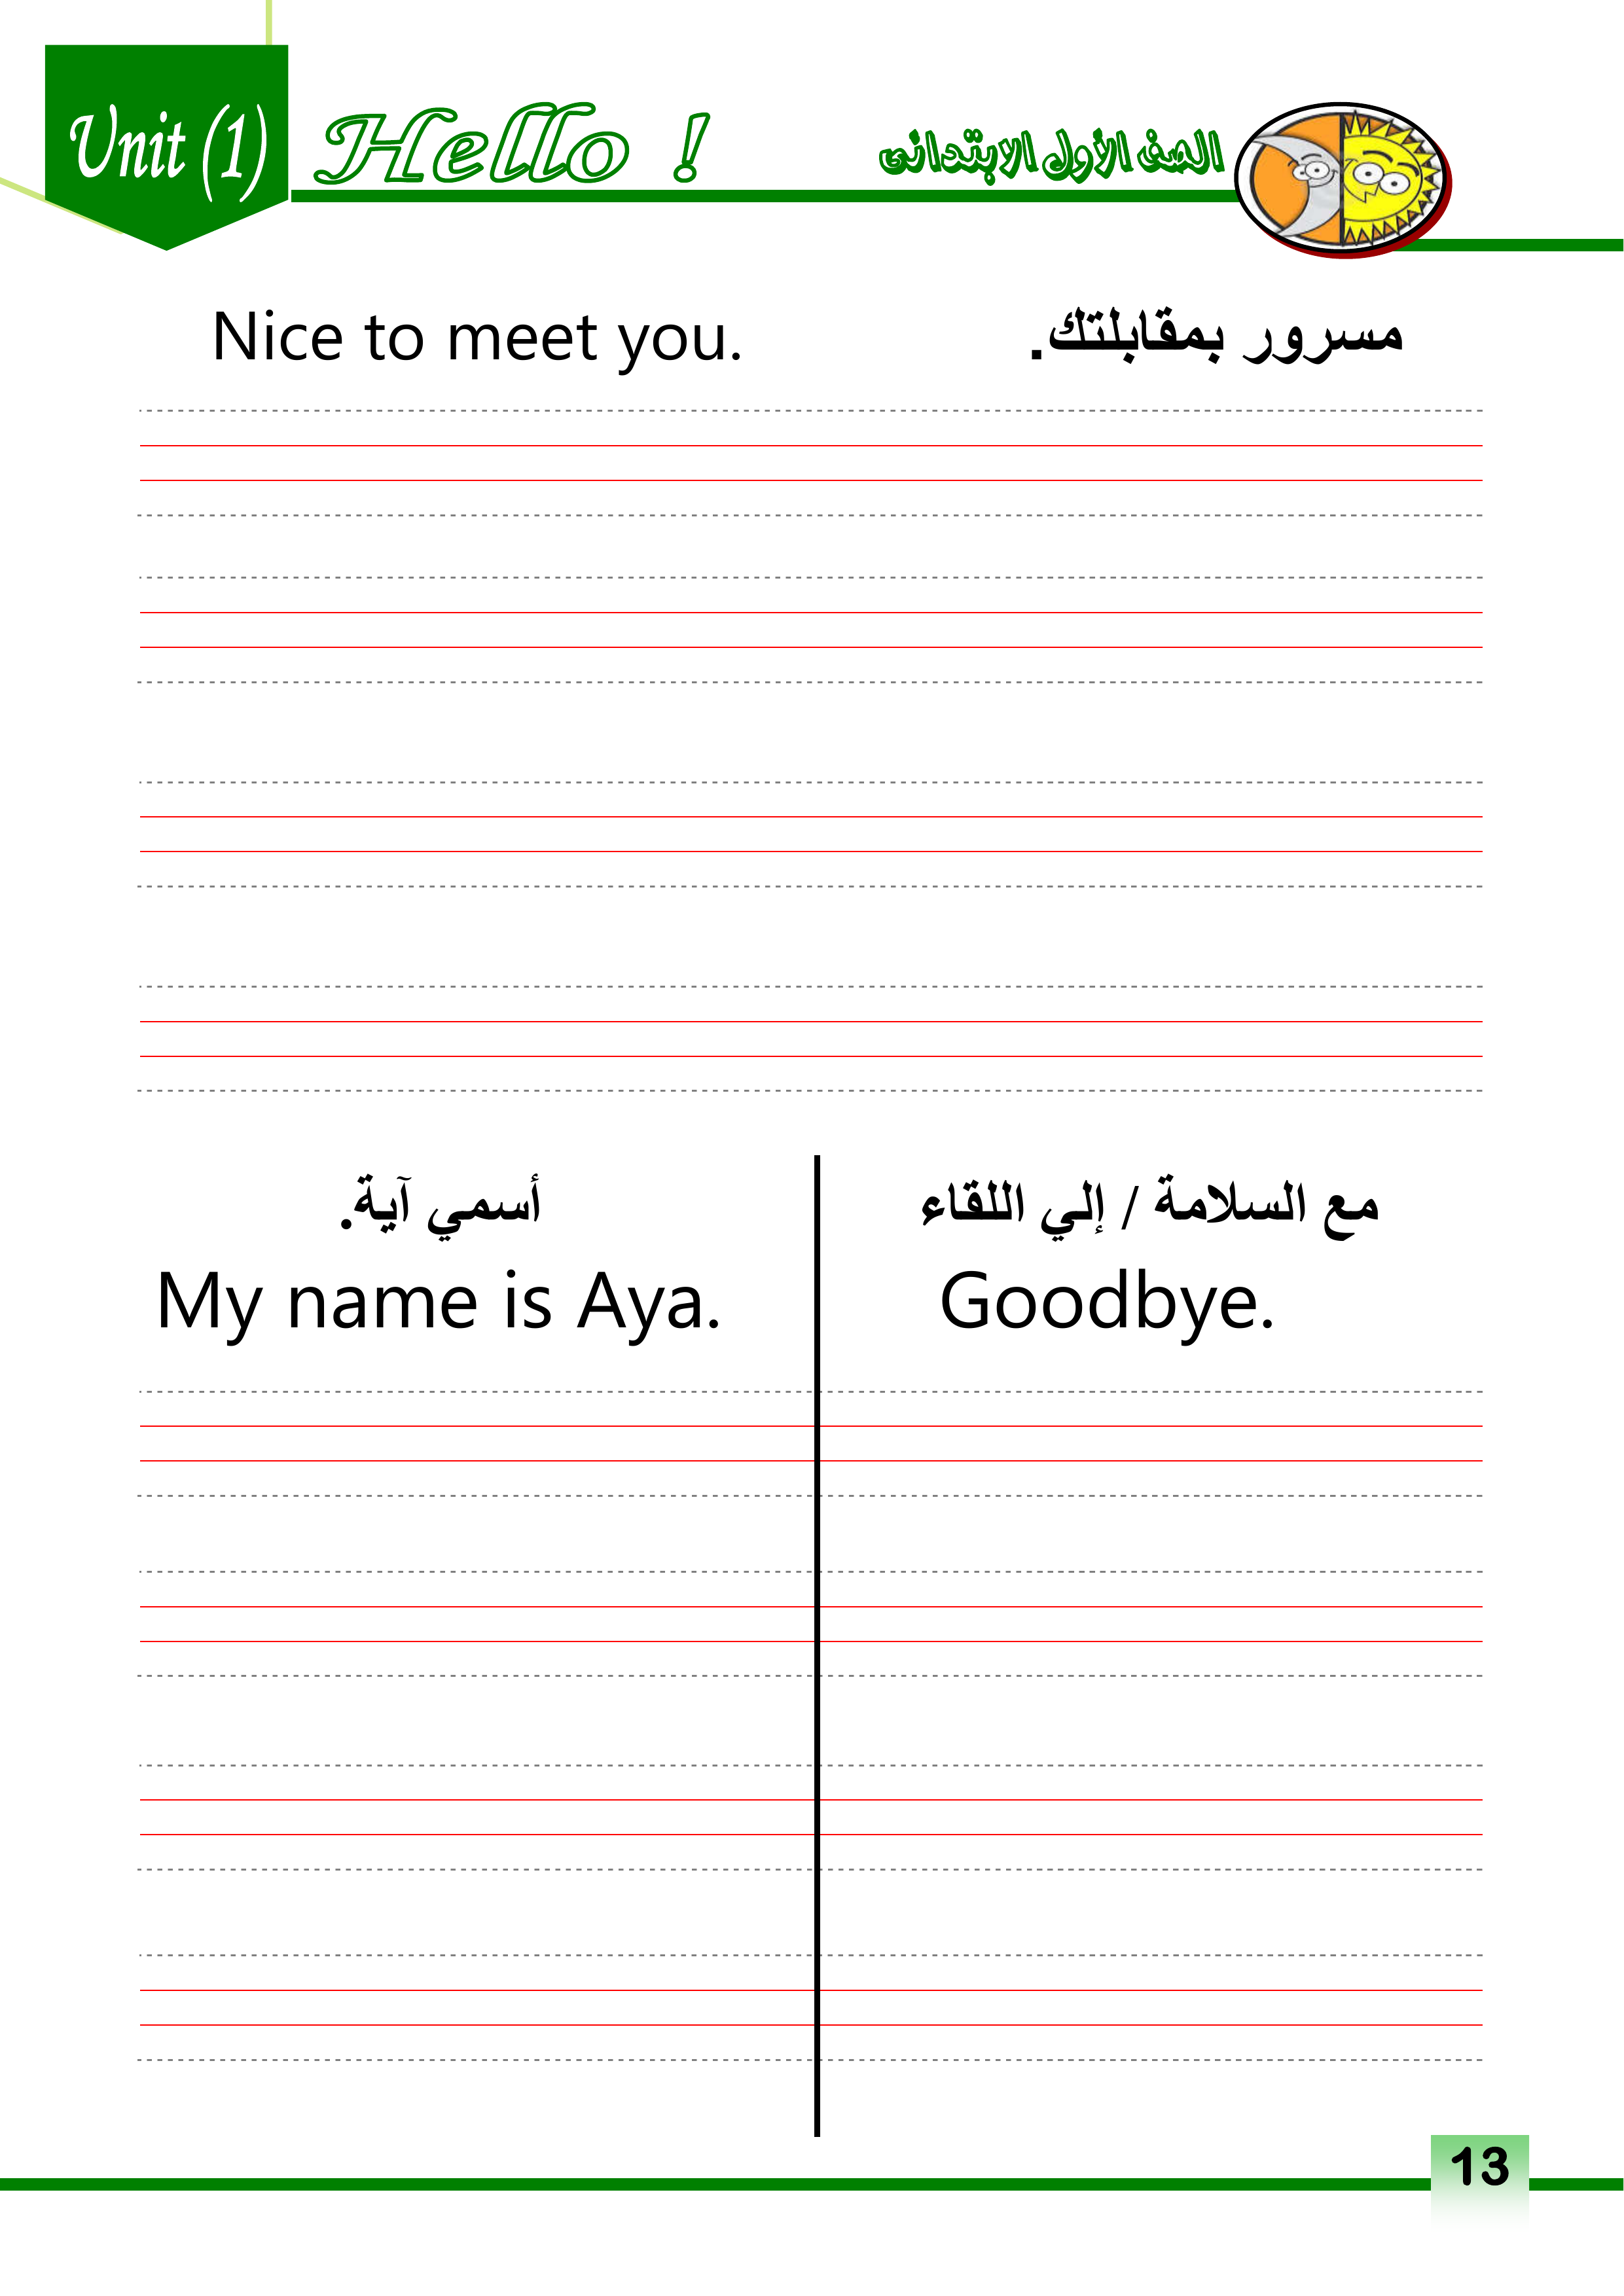 Unit (1) Hello ! الصف الأول الابتدائى
Nice to meet you. مسرور بمقابلتك.
أسمي آية.
My name is Aya.
مع السلامة / إلي اللقاء
Goodbye.
13